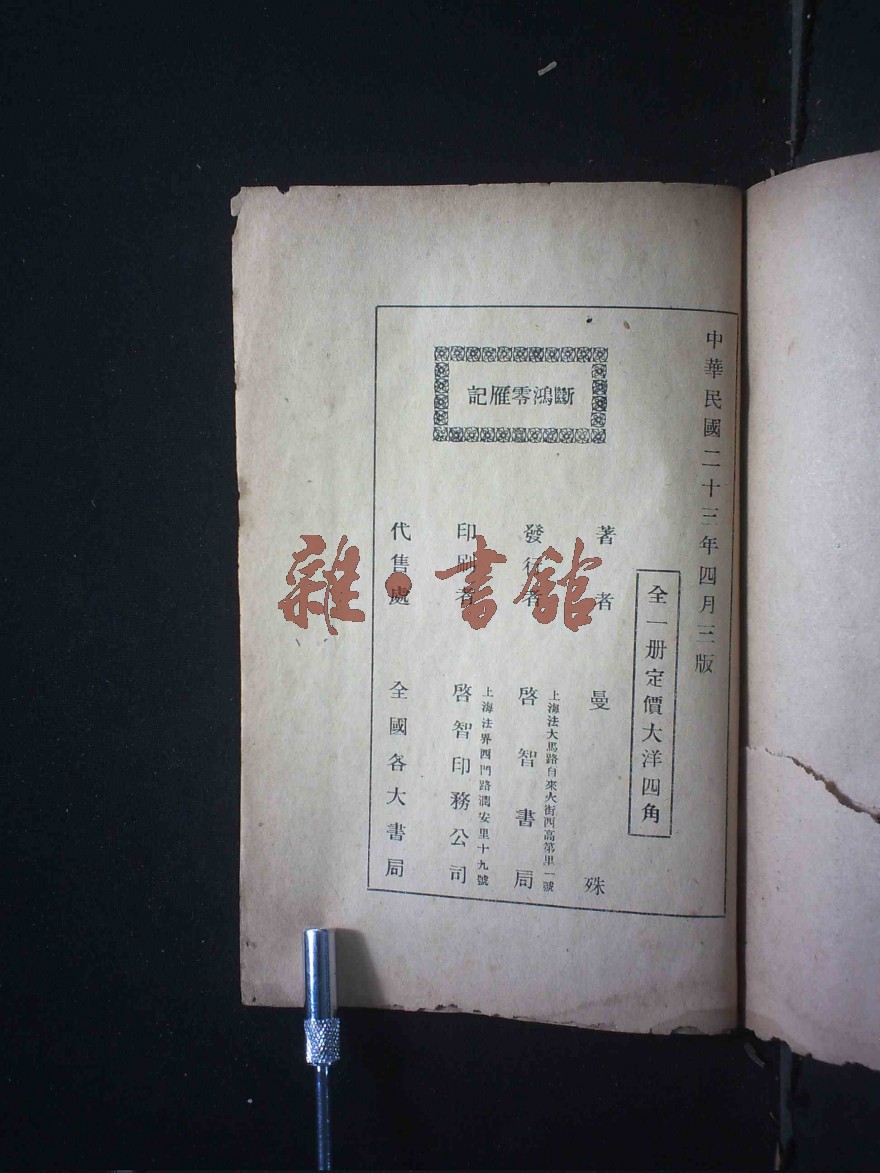 中華民國二十三年四月三版
斷鴻零雁記
全一册定價大洋四角
著者 曼殊
發行者 啓智書局
上海法大馬路自來火街西高第里一號
印刷者 啓智印務公司
上海法界西門路潤安里十九號
代售處 全國各大書局
雜·書館